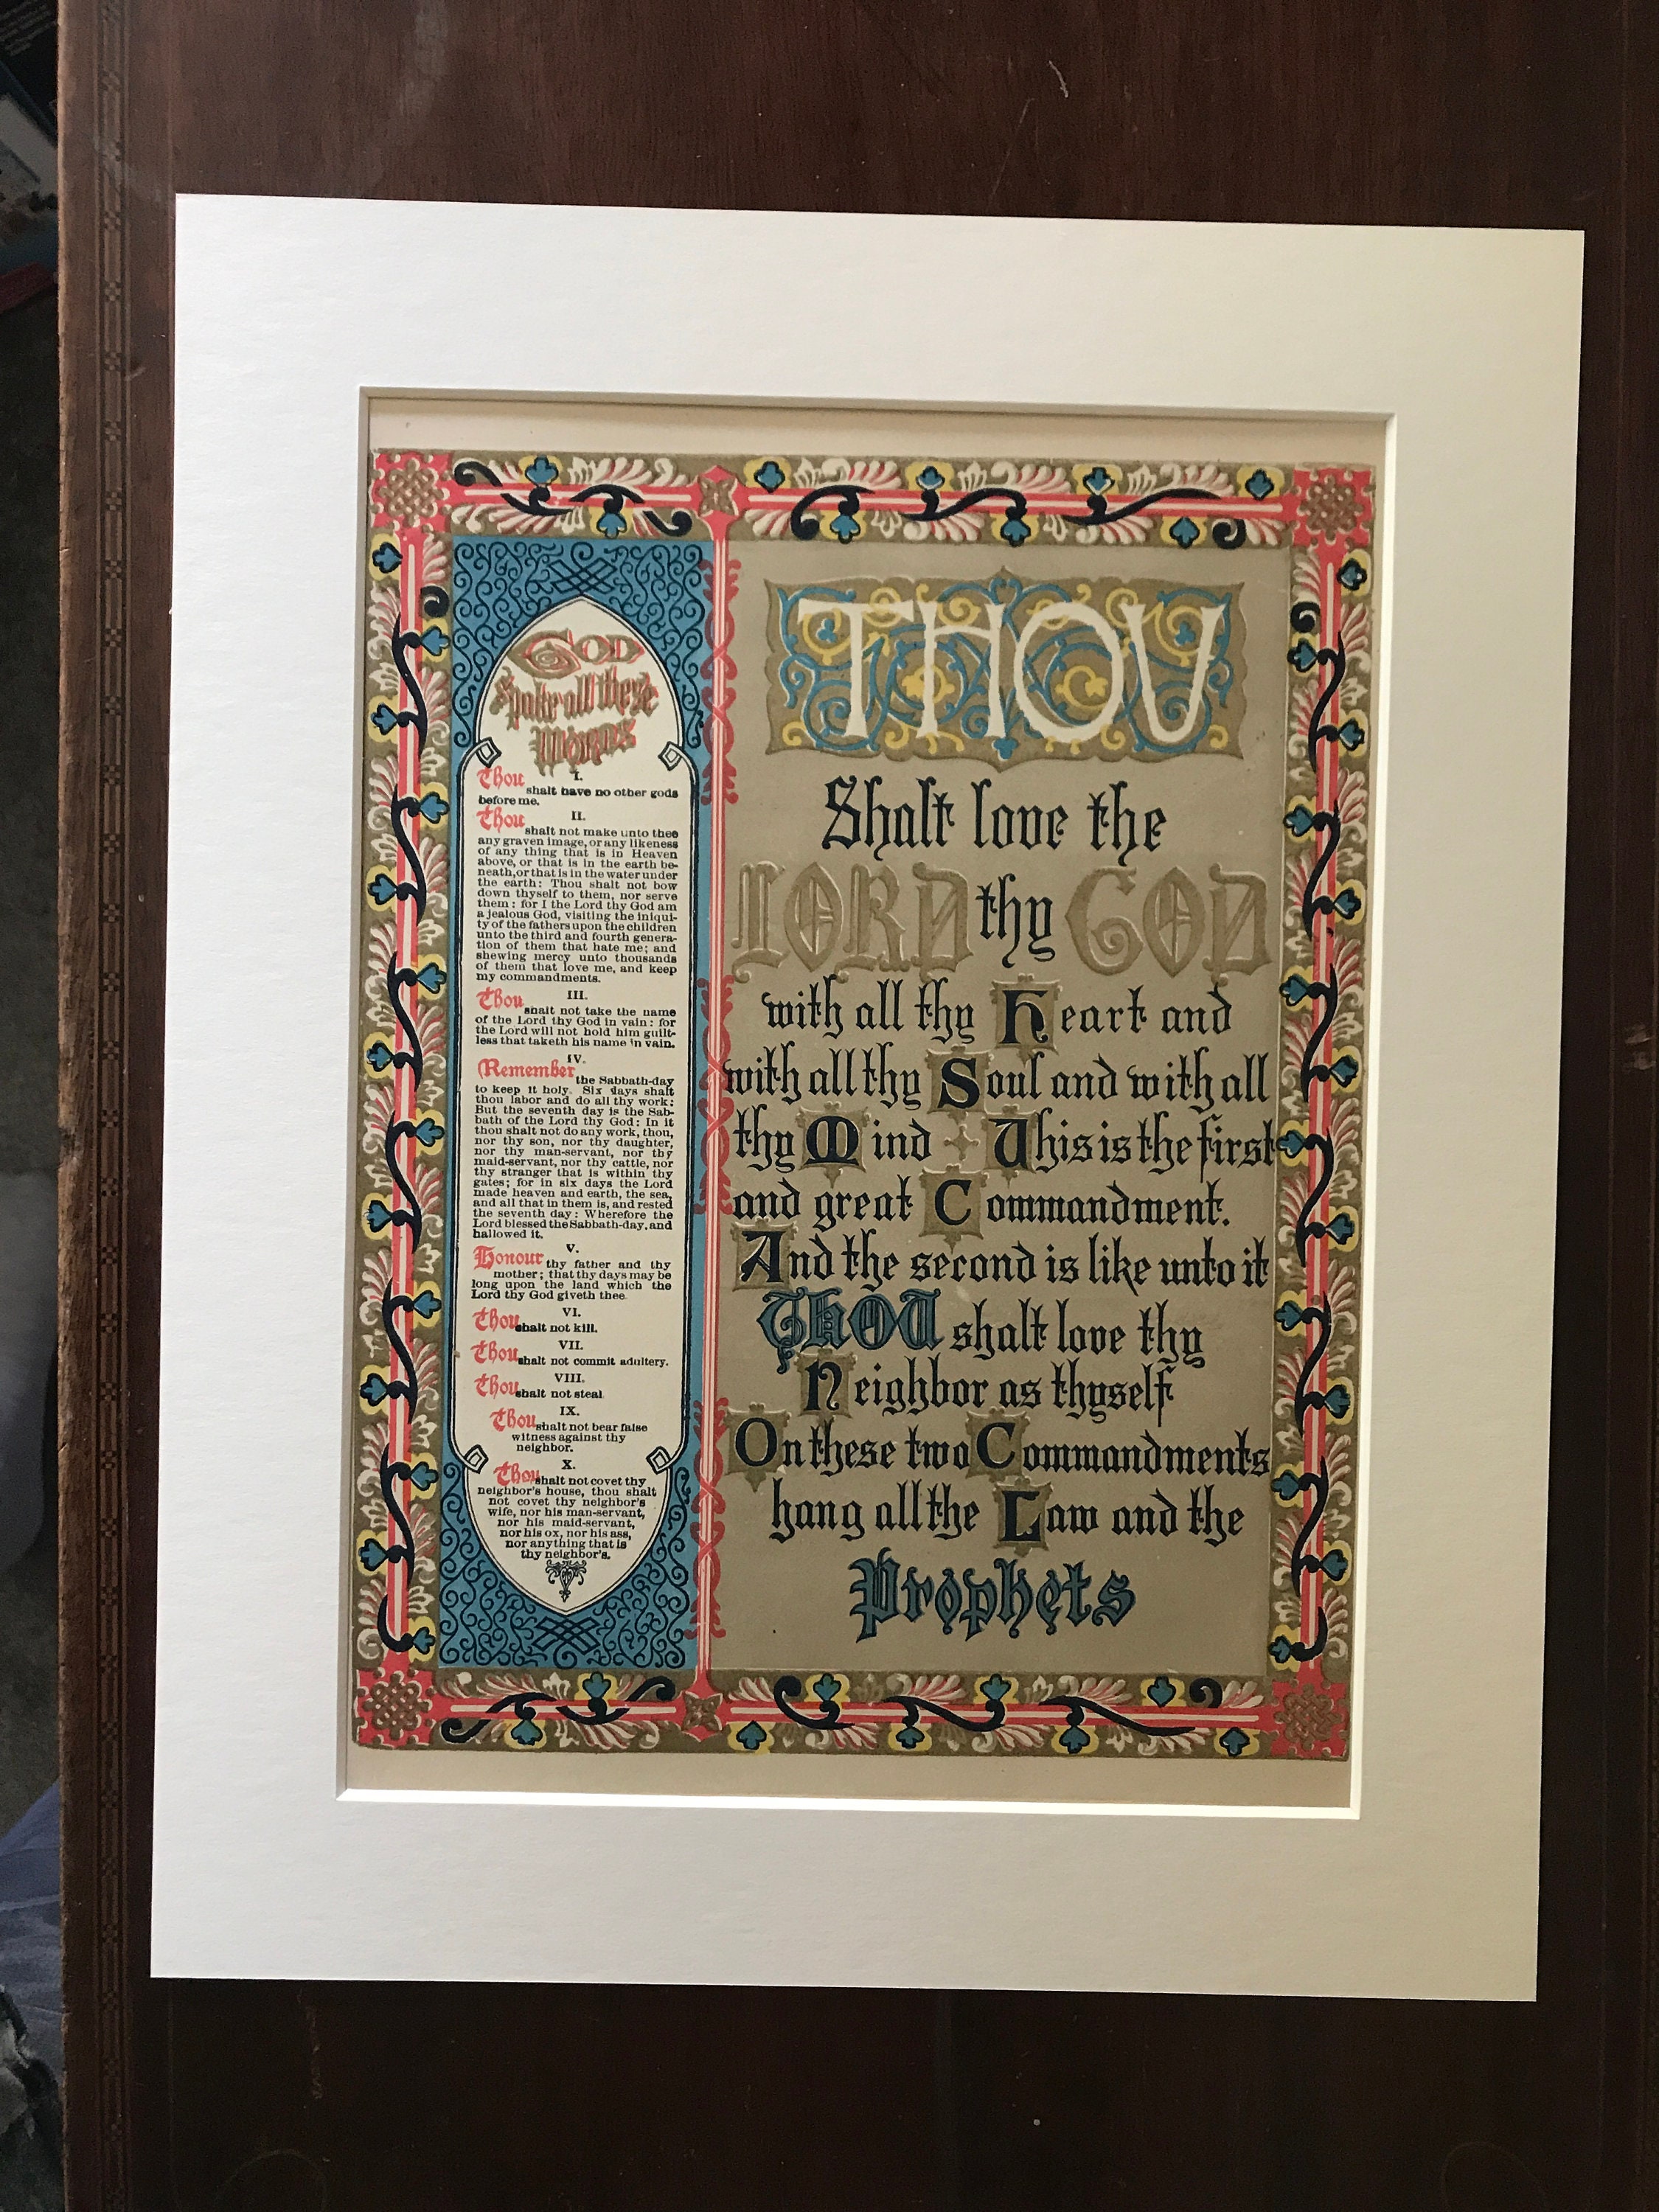 GOD
Spake all these
Words
I.
Thou
shalt have no other gods
before me.
II.
Thou
shalt not make unto thee
any graven image, or any likeness
of any thing that is in Heaven
above, or that is in the earth be-
neath, or that is in the water under
the earth: Thou shalt not bow
down thyself to them, nor serve
them: for I the Lord thy God am
a jealous God, visiting the iniqui-
ty of the fathers upon the children
unto the third and fourth genera-
tion of them that hate me; and
shewing mercy unto thousands
of them that love me, and keep
my commandments.
III.
Thou
shalt not take the name
of the Lord thy God in vain: for
the Lord will not hold him guilt-
less that taketh his name in vain.
IV.
Remember
the Sabbath-day
to keep it holy. Six days shalt
thou labor and do all thy work:
But the seventh day is the Sab-
bath of the Lord thy God: In it
thou shalt not do any work, thou,
nor thy son, nor thy daughter,
nor thy man-servant, nor thy
maid-servant, nor thy cattle, nor
thy stranger that is within thy
gates; for in six days the Lord
made heaven and earth, the sea,
and all that in them is, and rested
the seventh day: Wherefore the
Lord blessed the Sabbath-day, and
hallowed it.
V.
Honour thy father and thy
mother; that thy days may be
long upon the land which the
Lord thy God giveth thee.
VI.
Thou shalt not kill.
VII.
Thou shalt not commit adultery.
VIII.
Thou shalt not steal
IX.
Thou shalt not bear false
witness against thy
neighbor.
X.
Thou shalt not covet thy
neighbor's house, thou shalt
not covet thy neighbor's
wife, nor his man-servant,
nor his maid-servant,
nor his ox, nor his ass,
nor anything that is
thy neighbor's.
THOU
Shalt love the
LORD thy GOD
with all thy Heart and
with all thy Soul and with all
thy Mind This is the first
and great Commandment.
And the second is like unto it
THOU shalt love thy
Neighbor as thyself
On these two Commandments
hang all the Law and the
Prophets